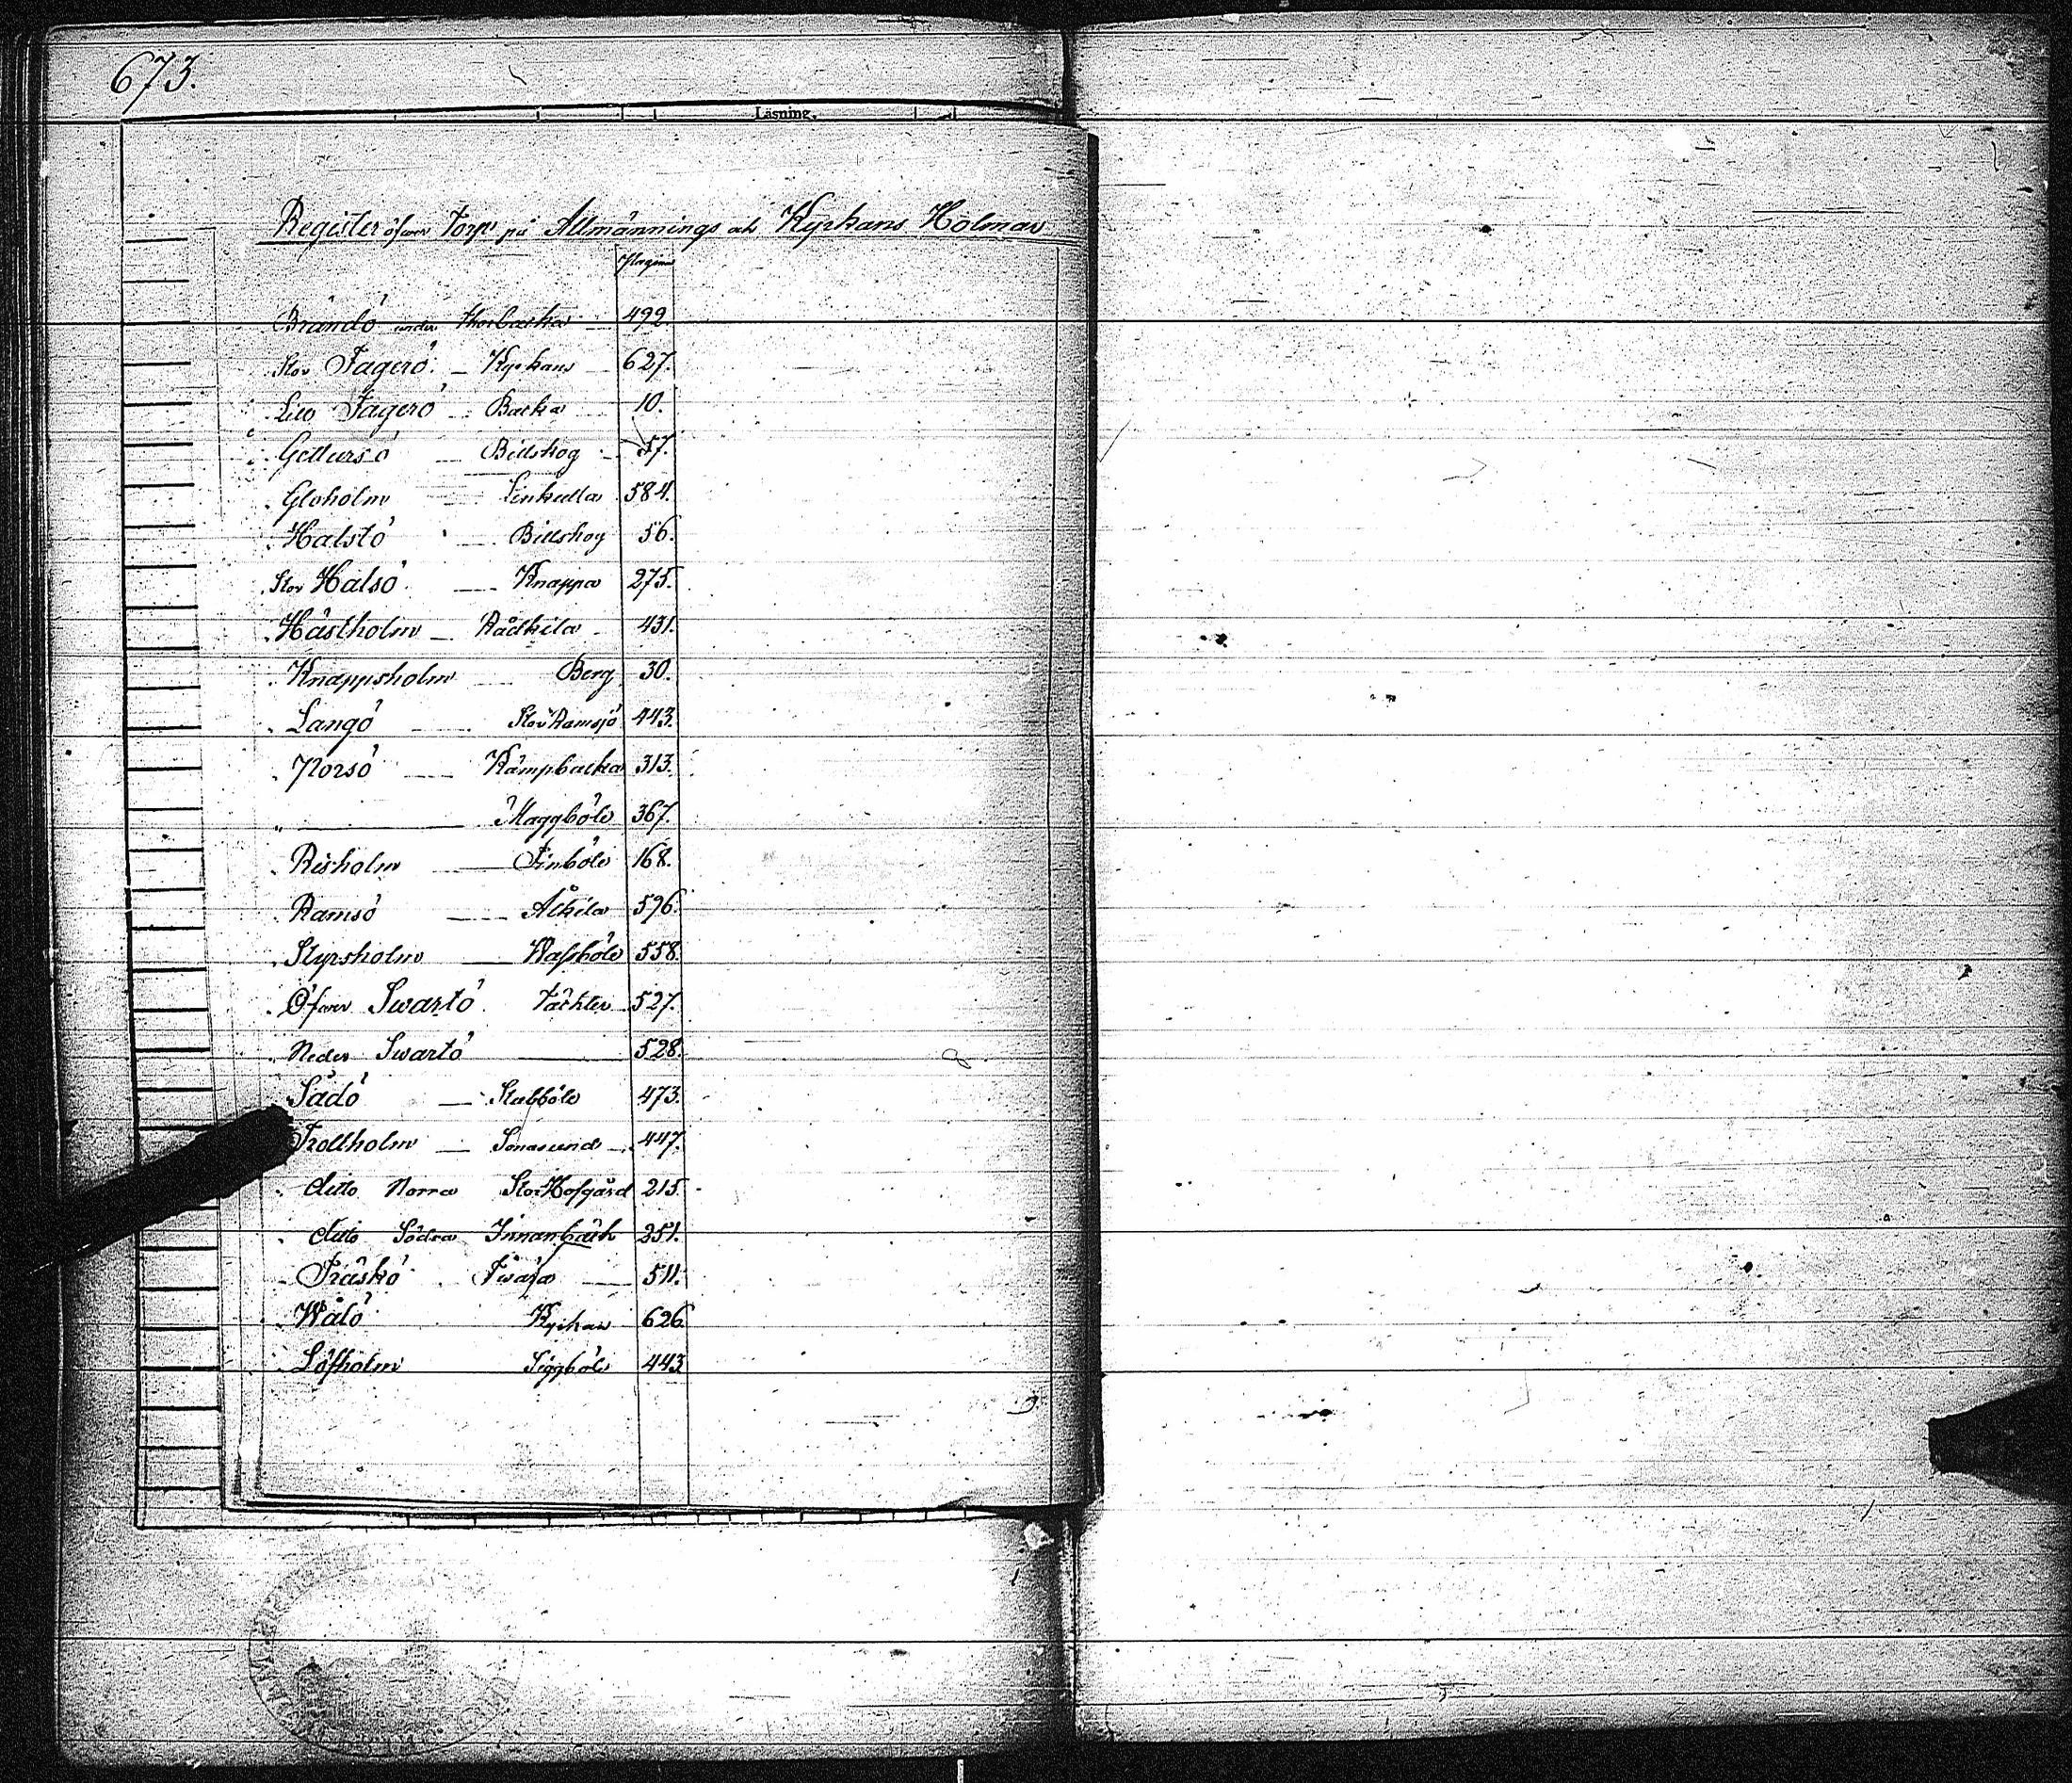 673.
Läsning.
Register öfwer Torp på Allmännings och Kyrkans Holmar
Pagina
Brändö under Skorbacka 492
Stor Fagerö — Kyrkans 627.
Lill Fagerö — Backa 10.
Gettursö — Billskog 57.
Gloholm — Finkulla 584.
Halstö — Billskog 56.
Stor Halsö — Knappa 275.
Hästholm — Rådkila 431.
Knappsholm — Berg 30.
Långö — Stor Ramsjö 443.
Norsö — Kämpbacka 313.
" — Maggböle 367.
Risholm — Finböle 168.
Ramsö — Åkila 596.
Styrsholm — Wassböle 558.
Öfwer Swartö Täckter 527.
Neder Swartö — 528.
Sådö — Stabböle 473.
Trollholm — Sonasund 447.
ditto Norra Stor Hofgård 215.
ditto Södra Innanbäck 251.
Träskö Twära — 511.
Wålö Kyrkans 626
Löfholm Siggböle 443